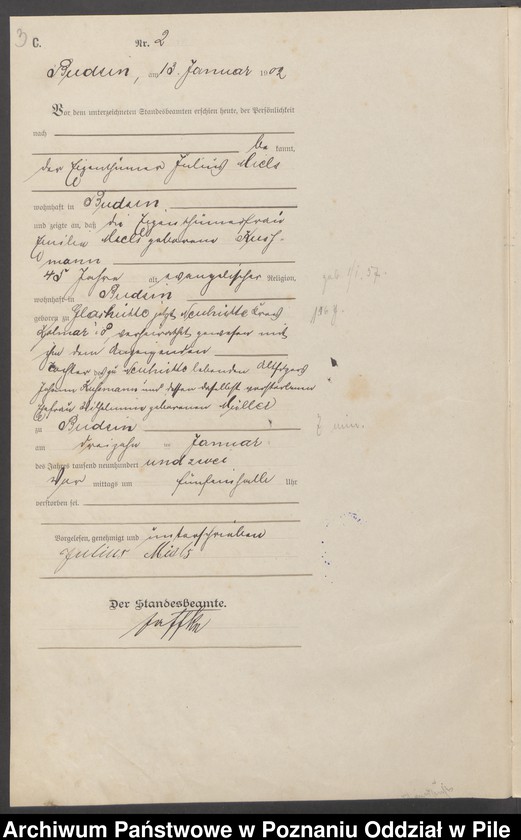 3 C.
Nr. 2
Budsin, am 13. Januar 1902
Vor dem unterzeichneten Standesbeamten erschien heute, der Persönlichkeit
nach
be kannt,
der Eigenthümer Julius
wohnhaft in Budsin
und zeigte an, daß die Eigenthümerfrau
Emilie geborene
mann
45 Jahre alt, evangelischer Religion,
wohnhaft in Budsin
geboren zu Glashütte, jetzt Neuhütte Kreis
Kolmar i/P, verheirathet gewesen mit
ihm dem Anzeigenden
Tochter des zu Neuhütte lebenden Altsitzers
Johann und dessen daselbst verstorbenen
Ehefrau Wilhelmine geborenen Müller
zu Budsin
am dreizehn ten Januar
des Jahres tausend neunhundert und zwei
Vor mittags um fünfeinhalb Uhr
verstorben sei.
Vorgelesen, genehmigt und unterschrieben
Julius
Der Standesbeamte.
Archiwum Państwowe w Poznaniu Oddział w Pile